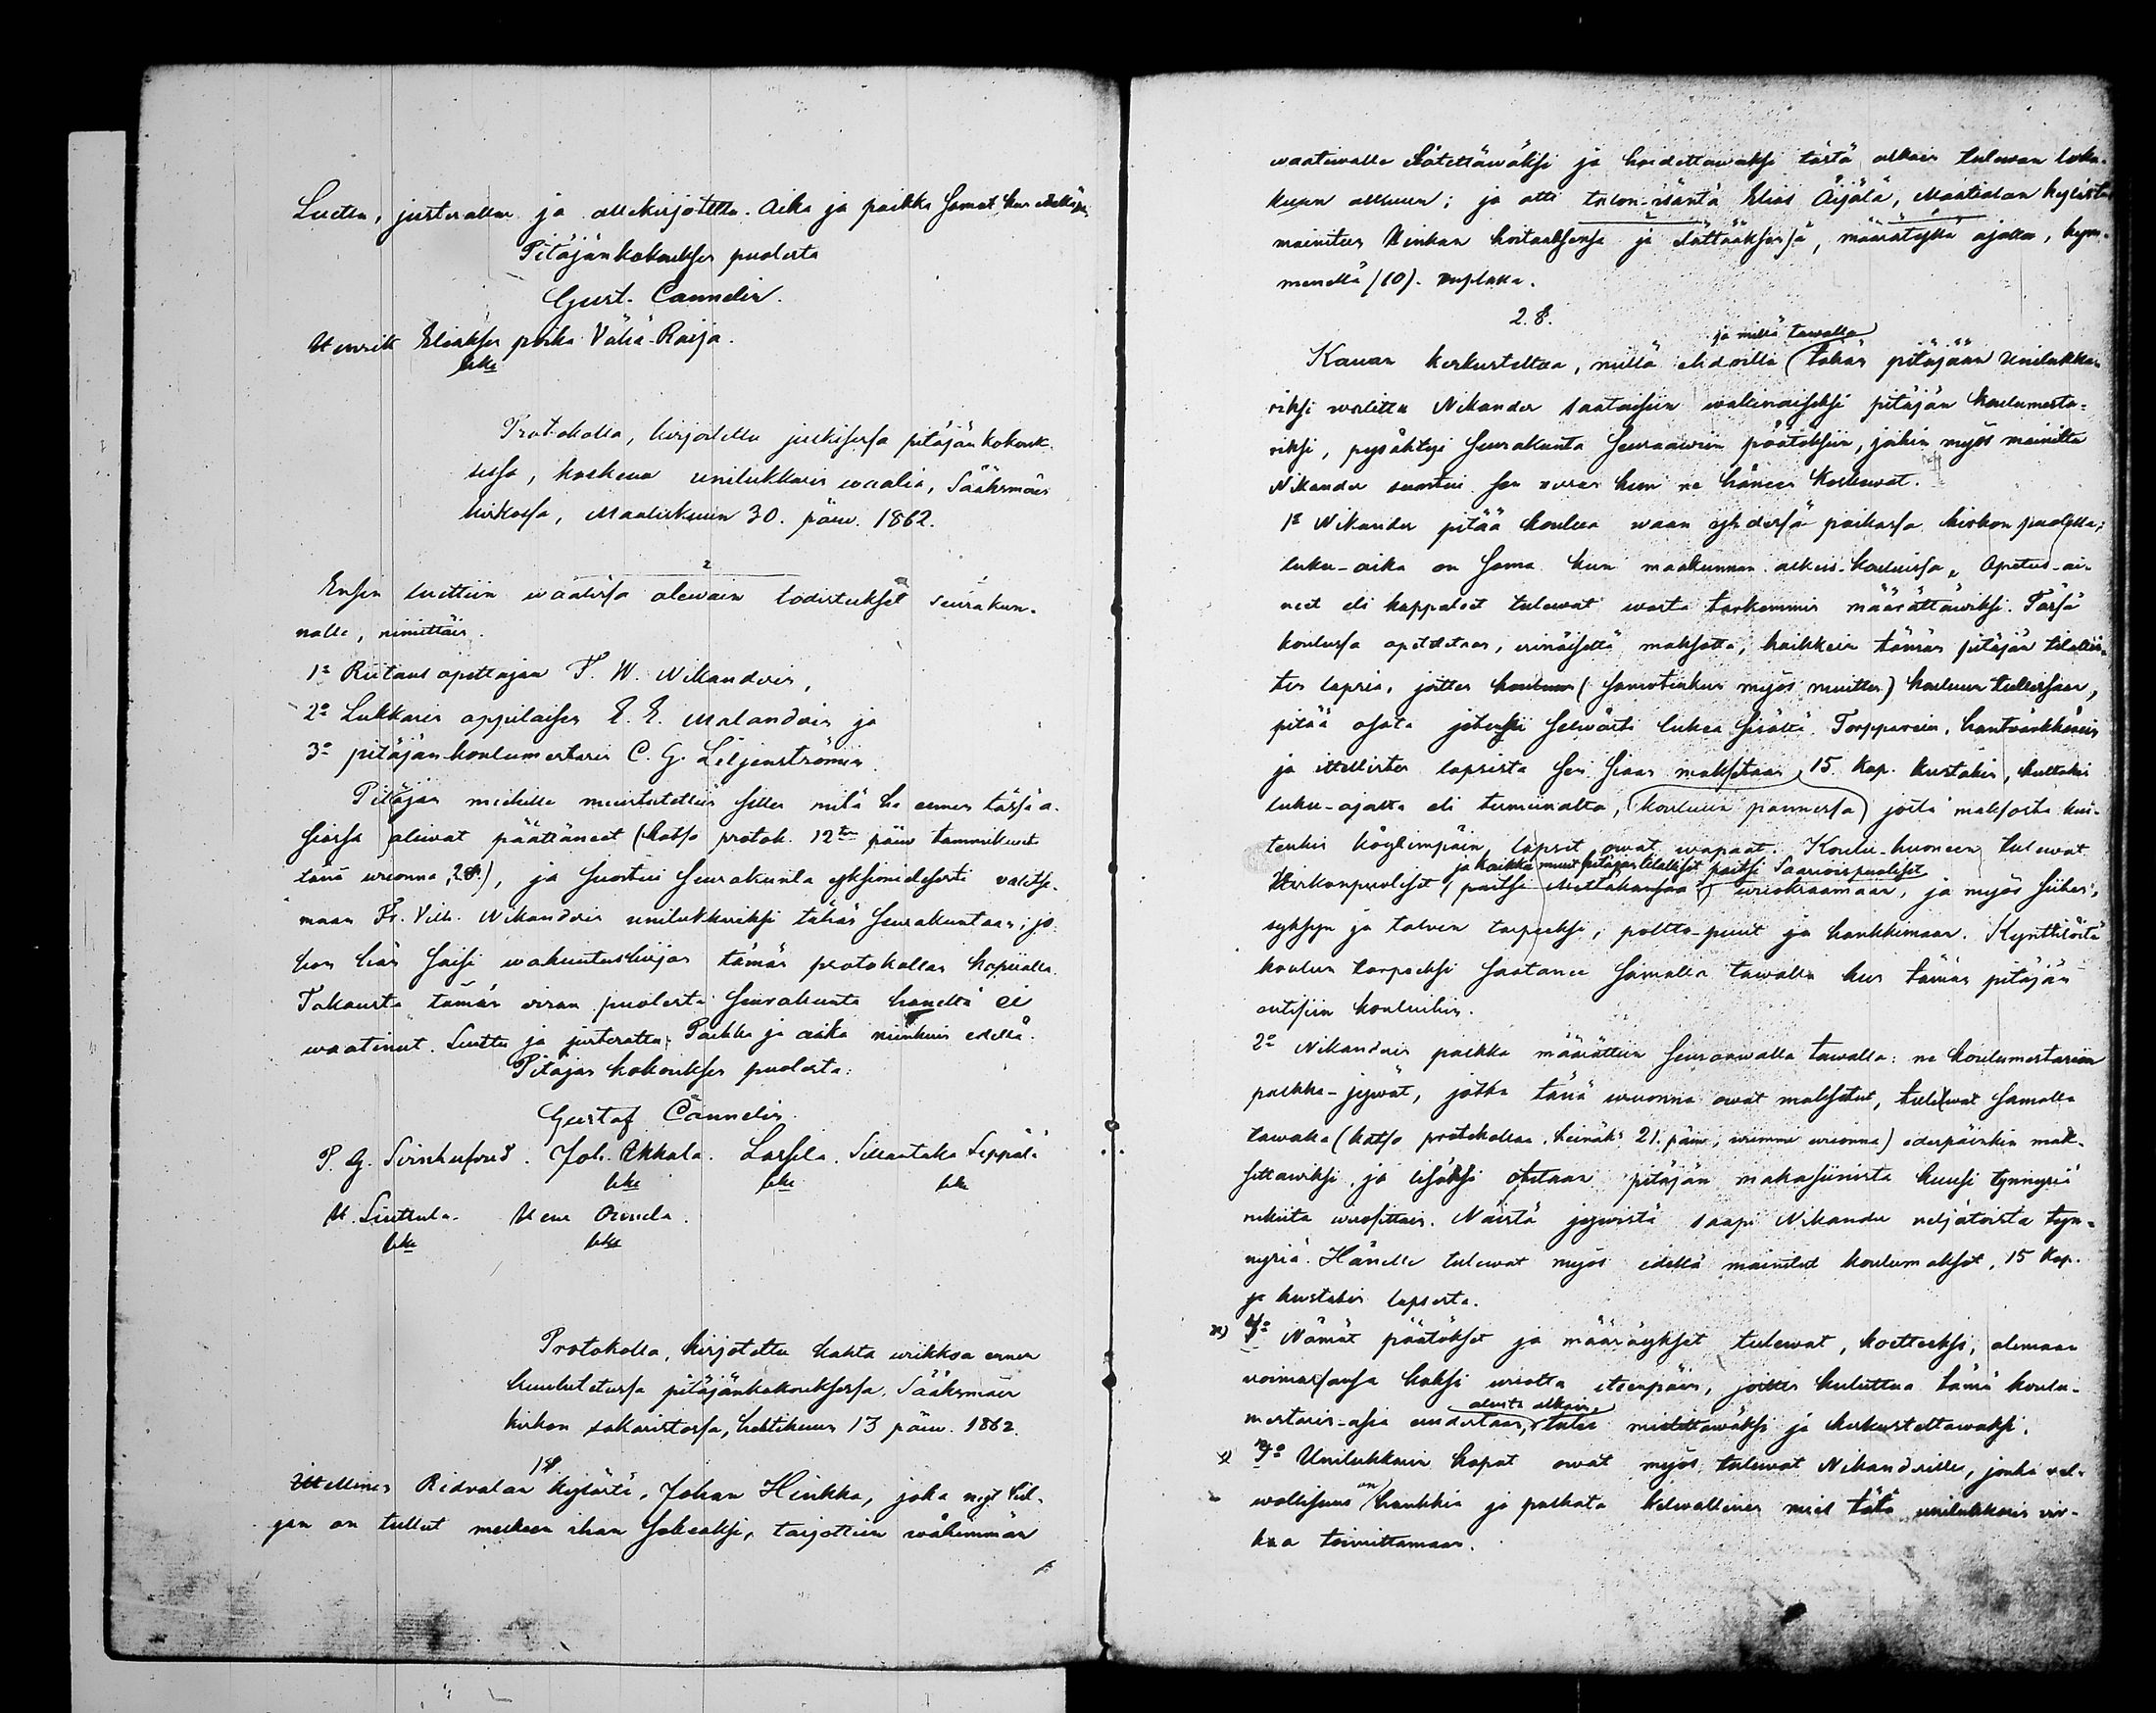 Luettu, justerattu ja allekirjotettu. Aika ja paikka samat kun edellä.
Pitäjänkokouksen puolesta
Gust. Cannelin.
Henrik Eliaksen poika Vähä-Raija.
Protokolla, kirjoitettu julkisessa pitäjänkokouk-
sessa, koskewa unilukkarin waalia, Sääksmäen
kirkossa, Maaliskuun 30. päiw. 1862.
Ensin luettiin waalissa olewain todistukset seurakun-
nalle, nimittäin.
1o Rietaus opettajan F. W. Nikanderin,
2o Lukkarin oppilaisen E. E. Malanderin ja
3o pitäjän-koulumestarin C. G. Liljenströmin.
Pitäjän miehille muistutettiin sitten mitä he ennen tässä a-
siassa oliwat päättäneet (katso protok. 12ta päiw tammikuuta
tänä wuonna, 2 §), ja suostui seurakunta yksimielisesti valitse-
maan Fr. Vilh. Nikanderin unilukkariksi tähän seurakuntaan; jo-
hon hän saisi wakuutuskirjan tämän protokollan kopialla.
Takausta tämän wiran puolesta seurakunta häneltä ei
waatinut. Luettu ja justerattu; Paikka ja aika niinkuin edellä.
Pitäjän kokouksen puolesta:
Gustaf Cannelin.
P. G. Svinhufvud. Joh. Akkala. Lassila. Sillantaka Seppälä
H. Liuttula. Hen Onnela.
Protokolla, kirjotettu kahta wiikkoa ennen
kuulutetussa pitäjänkokouksessa, Sääksmäen
kirkon sakaristossa, huhtikuun 13 päiw. 1862.
1 §
Itellinen Ridvalan kylästä, Johan Hinkka, joka nyt sil-
jan on tullut melkeen ihan sokeaksi, tarjottiin wähimmän
waatiwalle elätettäwäksi ja hoidettawaksi tästä alkain tulewan loka-
kuun alkuun; ja otti talon-isäntä Elias Äijälä, Maatialan kylästä
mainitun Hinkan hoitaaksensa ja elättääksensä, määrätyksi ajaksi, kym-
menellä (10). ruplaka.
2. §.
ja millä tawalla
Kauan keskusteltua, millä ehdoilla tähän pitäjään unilukka-
riksi walittu Nikander saataisiin wakinaiseksi pitäjän koulumesta-
riksi, pysähtyi seurakunta seuraawiin päätöksiin, joihin myös mainittu
Nikander suostui sen werran kun ne häneen koskewat.
1o Nikander pitää koulua waan yhdessä paikassa kirkon puolella;
luku-aika on sama kun maakunnan alkeis-kouluissa. Opetus-ai-
neet eli kappaleet tulewat wasta tarkemmin määrättäwiksi. Tässä
koulussa opetetaan, erinäisettä maksotta, kaikkein tämän pitäjän tilallis-
ten lapsia, joitten (samotenkun myös muitten) kouluun tullessaan,
pitää osata jotenkin selwästi lukea sisältä. Torpparein, hantwärkkärein
ja itellisten lapsista sen siaan maksetaan 15 kop. kustakin, kultakin
luku-ajalta eli termiinalta, (kouluun pannessa) joita maksoista kui-
tenkin köyhimpäin lapset owat wapaat. Koulu-huoneen tulewat
ja kaikki muut pitäjän tilalliset paitsi Saarioispuoliset
Kirkonpuoliset, paitsi Mettäkansaa wuokraamaan, ja myös siihen,
syksyn ja talven tarpeeksi, poltto-puut ja hankkimaan. Kynttilöitä
koulun tarpeeksi saatanee samalla tawalla kun tämän pitäjän
entisiin kouluihin.
2o Nikanderin palkka määrättiin seuraawalla tawalla: ne koulumestariin
palkka-jywät, jotka tänä wuonna owat maksetut, tulewat samalla
tawalla (katso protokollaa, heinäk. 21. päiw, wiimme wuonna) edespäinkin mak-
settawiksi, ja lisäksi otetaan pitäjän makasiinista kuusi tynnyriä
rukiita wuosittain. Näistä jywistä saapi Nikander neljätoista tyn-
nyriä. Hänelle tulewat myös edellä mainitut koulumaksot, 15 kop.
ja kustakin lapsesta.
x) 4o Nämät päätökset ja määräykset tulewat, koetteeksi, olemaan
woimassansa kaksi wuotta eteenpäin, joitten kuluttua tämä koulu-
alusta alkain
mestarin-asia uudestaan, tulee mietittäwäksi ja keskusteltawaksi.
x) 3o Unilukkarin kapat owat myös tulewat Nikanderille, jonka vel-
wollisuus on hankkia ja palkata kelwallinen mies tätä unilukkarin vir-
kaa toimittamaan.